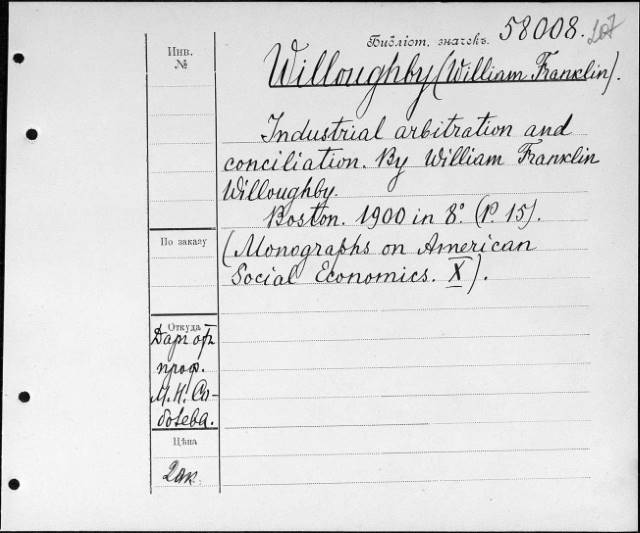 Библіот. значекъ. 58008.
Инв.
№
Willoughby (William Franklin).
Industrial arbitration and
conciliation. By William Franklin
Willoughby.
Boston. 1900 in 8°. (P. 15).
По заказу
(Monographs on American
Social Economics. X).
Откуда
Даръ отъ
проф.
М. Н. Со-
болева.
Цѣна